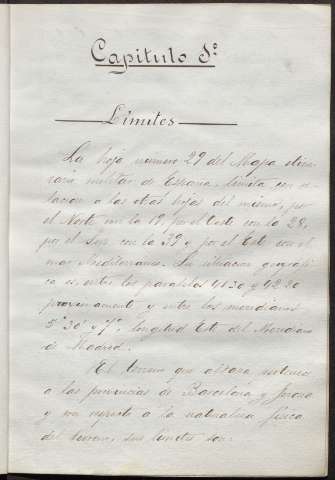 Capitulo 5º
Límites
La hoja número 29 del Mapa itine-
rario militar de España, limita con re-
lacion a las otras hojas del mismo, por
el Norte con la 19, por el Oeste con la 28,
por el Sur con la 39 y por el Este con el
mar Mediterraneo. Su situacion geografi-
ca es, entre los paralelos 41.30 y 42.20
proximamente y entre los meridianos
5º 30' y 7º longitud Este del Meridiano
de Madrid.
El terreno que abraza pertenece
a las provincias de Barcelona y Gerona
y con respecto a la naturaleza fisica
del terreno, sus limites son: